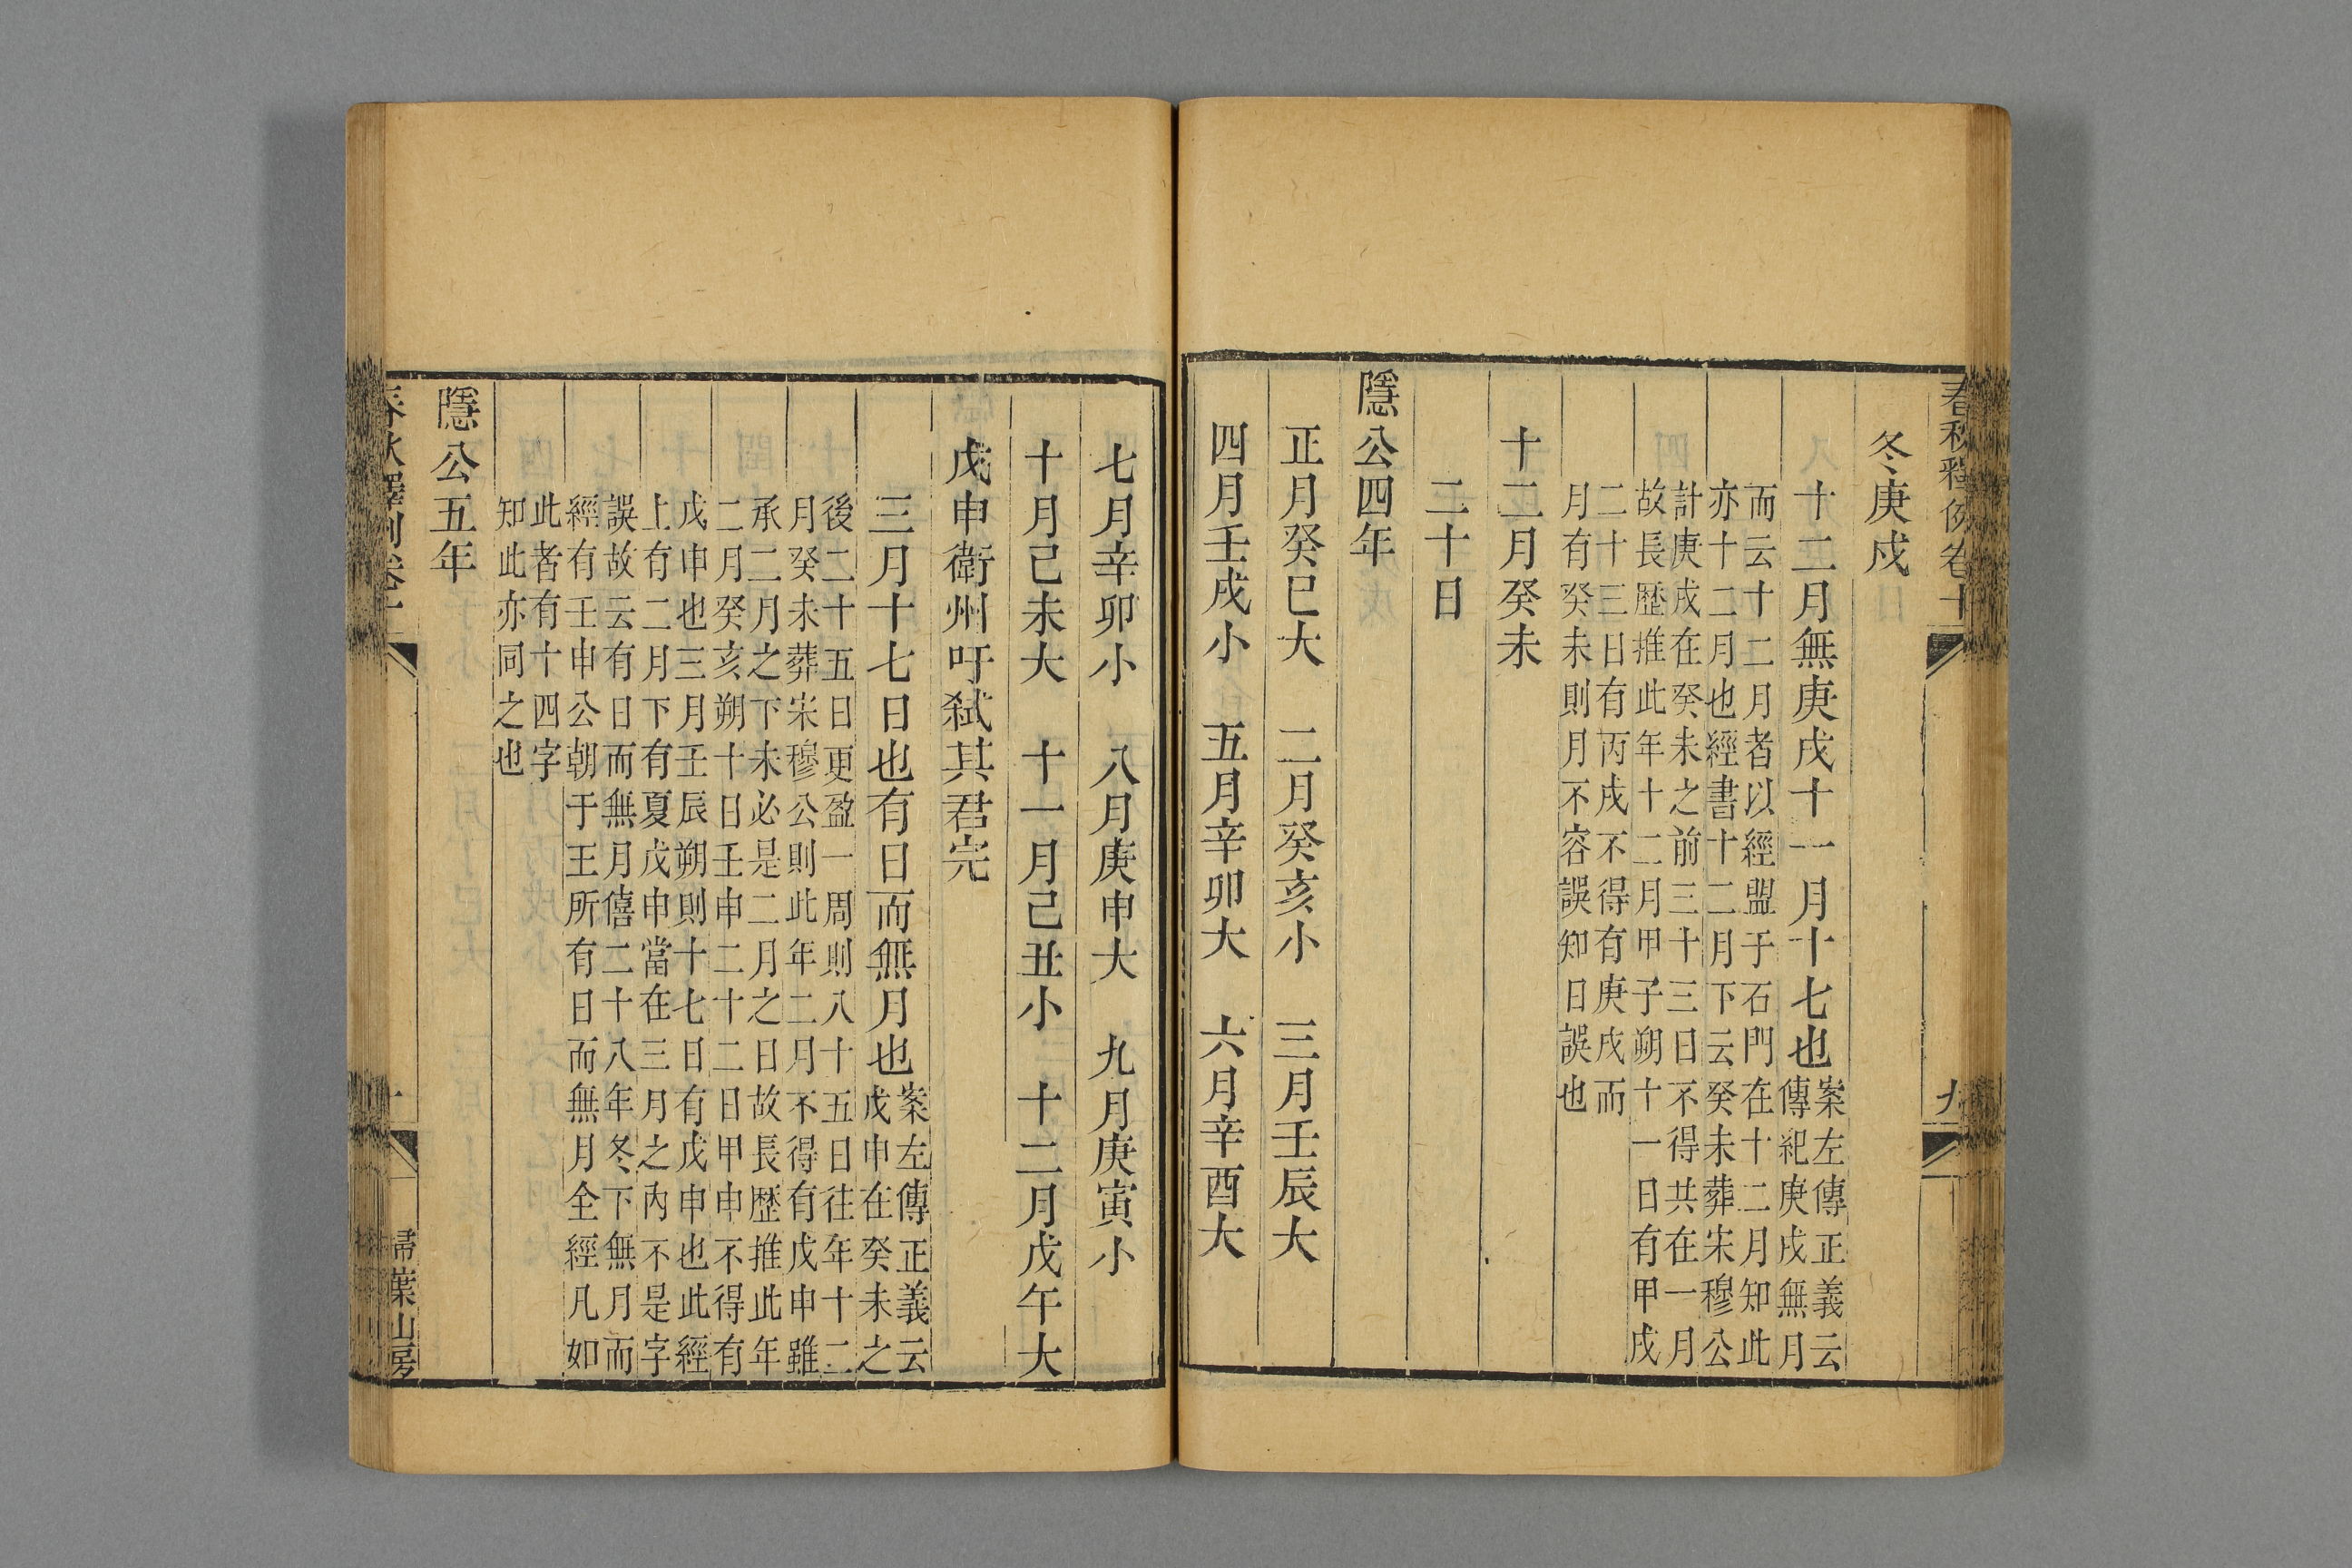 春秋釋例卷十
九
冬庚戌
十二月無庚戌十一月十七也案左傳正義云
傳紀庚戌無月
而云十二月者以經盟于石門在十二月知此
亦十二月也經書十二月下云癸未葬宋穆公
計庚戌在癸未之前三十三日不得共在一月
故長歷推此年十二月甲子朔十一日有甲戌
二十三日有丙戌不得有庚戌而
月有癸未則月不容誤知日誤也
十二月癸未
二十日
隱公四年
正月癸巳大 二月癸亥小 三月壬辰大
四月壬戌小 五月辛卯大 六月辛酉大
七月辛卯小 八月庚申大 九月庚寅小
十月己未大 十一月己丑小 十二月戊午大
戊申衛州吁弒其君完
三月十七日也有日而無月也案左傳正義云
戊申在癸未之
後二十五日更盈一周則八十五日往年十二
月癸未葬宋穆公則此年二月不得有戊申雖
承二月之下未必是二月之日故長歷推此年
二月癸亥朔十日壬申二十二日甲申不得有
戊申也三月壬辰朔則十七日有戊申也此經
上有二月下有夏戊申當在三月之內不是字
誤故云有日而無月僖二十八年冬下無月而
經有壬申公朝于王所有日而無月全經凡如
此者有十四字
知此亦同之也
隱公五年
春秋釋例卷十
十
掃葉山房